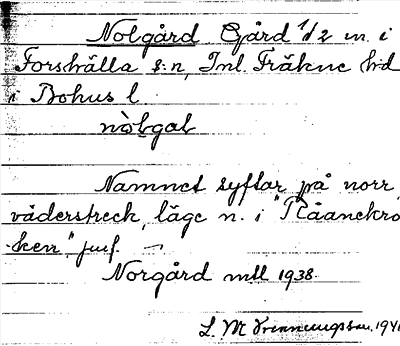 Nolgård Gård 1/2 m. i
Forshälla s:n, Inl. Fräkne hd
i Bohus l.
nòlgal
Namnet syftar på norr
väderstreck, läge n. i "Råanekro
ken" jmf. —
Norgård mtl 1938.
L. M. 1941